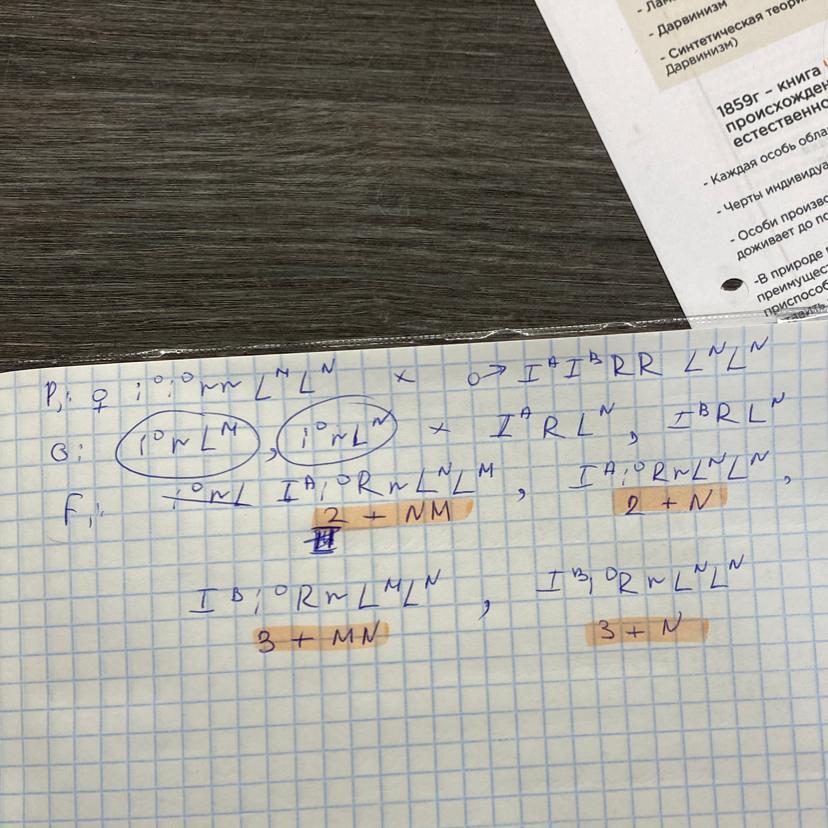 - Дарвинизм
- Синтетическая теори
Дарвинизм)
1859г – книга
происхожден
естественно
- Каждая особь обла
- Черты индивидуа
- Особи произво
доживает до по
-В природе
преимущес
приспособ
P₁: ♀ i⁰i⁰rr LᴹLᴺ × ♂ IᴬIᴮRR LᴺLᴺ
G: i⁰rLᴹ, i⁰rLᴺ × IᴬRLᴺ, IᴮRLᴺ
F₁: Iᴬi⁰RrLᴺLᴹ, Iᴬi⁰RrLᴺLᴺ,
2 + NM 2 + N
Iᴮi⁰RrLᴹLᴺ, Iᴮi⁰RrLᴺLᴺ
3 + MN 3 + N